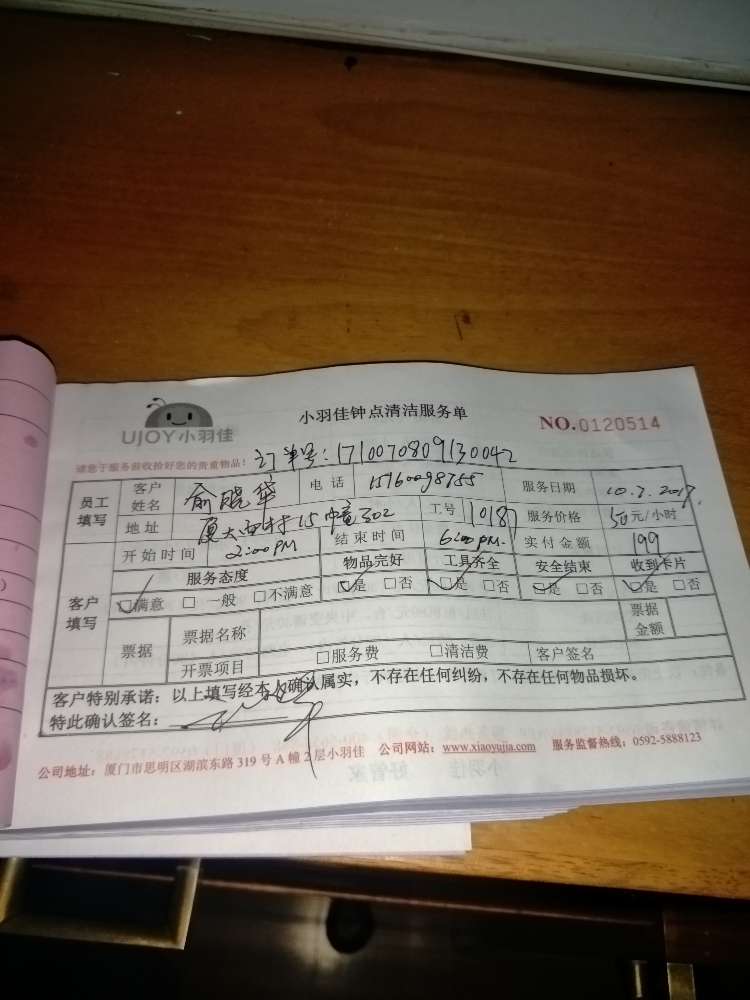 UJOY小羽佳
小羽佳钟点清洁服务单
NO.0120514
请您于服务前收拾好您的贵重物品!
订单号:1710070809130042
员工填写 客户姓名 俞晓华 电话 15760098755 服务日期 10.7.2017
地址 厦大西村15幢302 工号 10187 服务价格 50元/小时
开始时间 2:00PM 结束时间 6:00PM. 实付金额 199
客户填写 服务态度 物品完好 工具齐全 安全结束 收到卡片
☑满意 □一般 □不满意 ☑是 □否 ☑是 □否 ☑是 □否 ☑是 □否
票据 票据名称 票据金额
开票项目 □服务费 □清洁费 客户签名
客户特别承诺:以上填写经本人确认属实,不存在任何纠纷,不存在任何物品损坏。
特此确认签名:
公司地址:厦门市思明区湖滨东路319号A幢2层小羽佳 公司网站:www.xiaoyujia.com 服务监督热线:0592-5888123